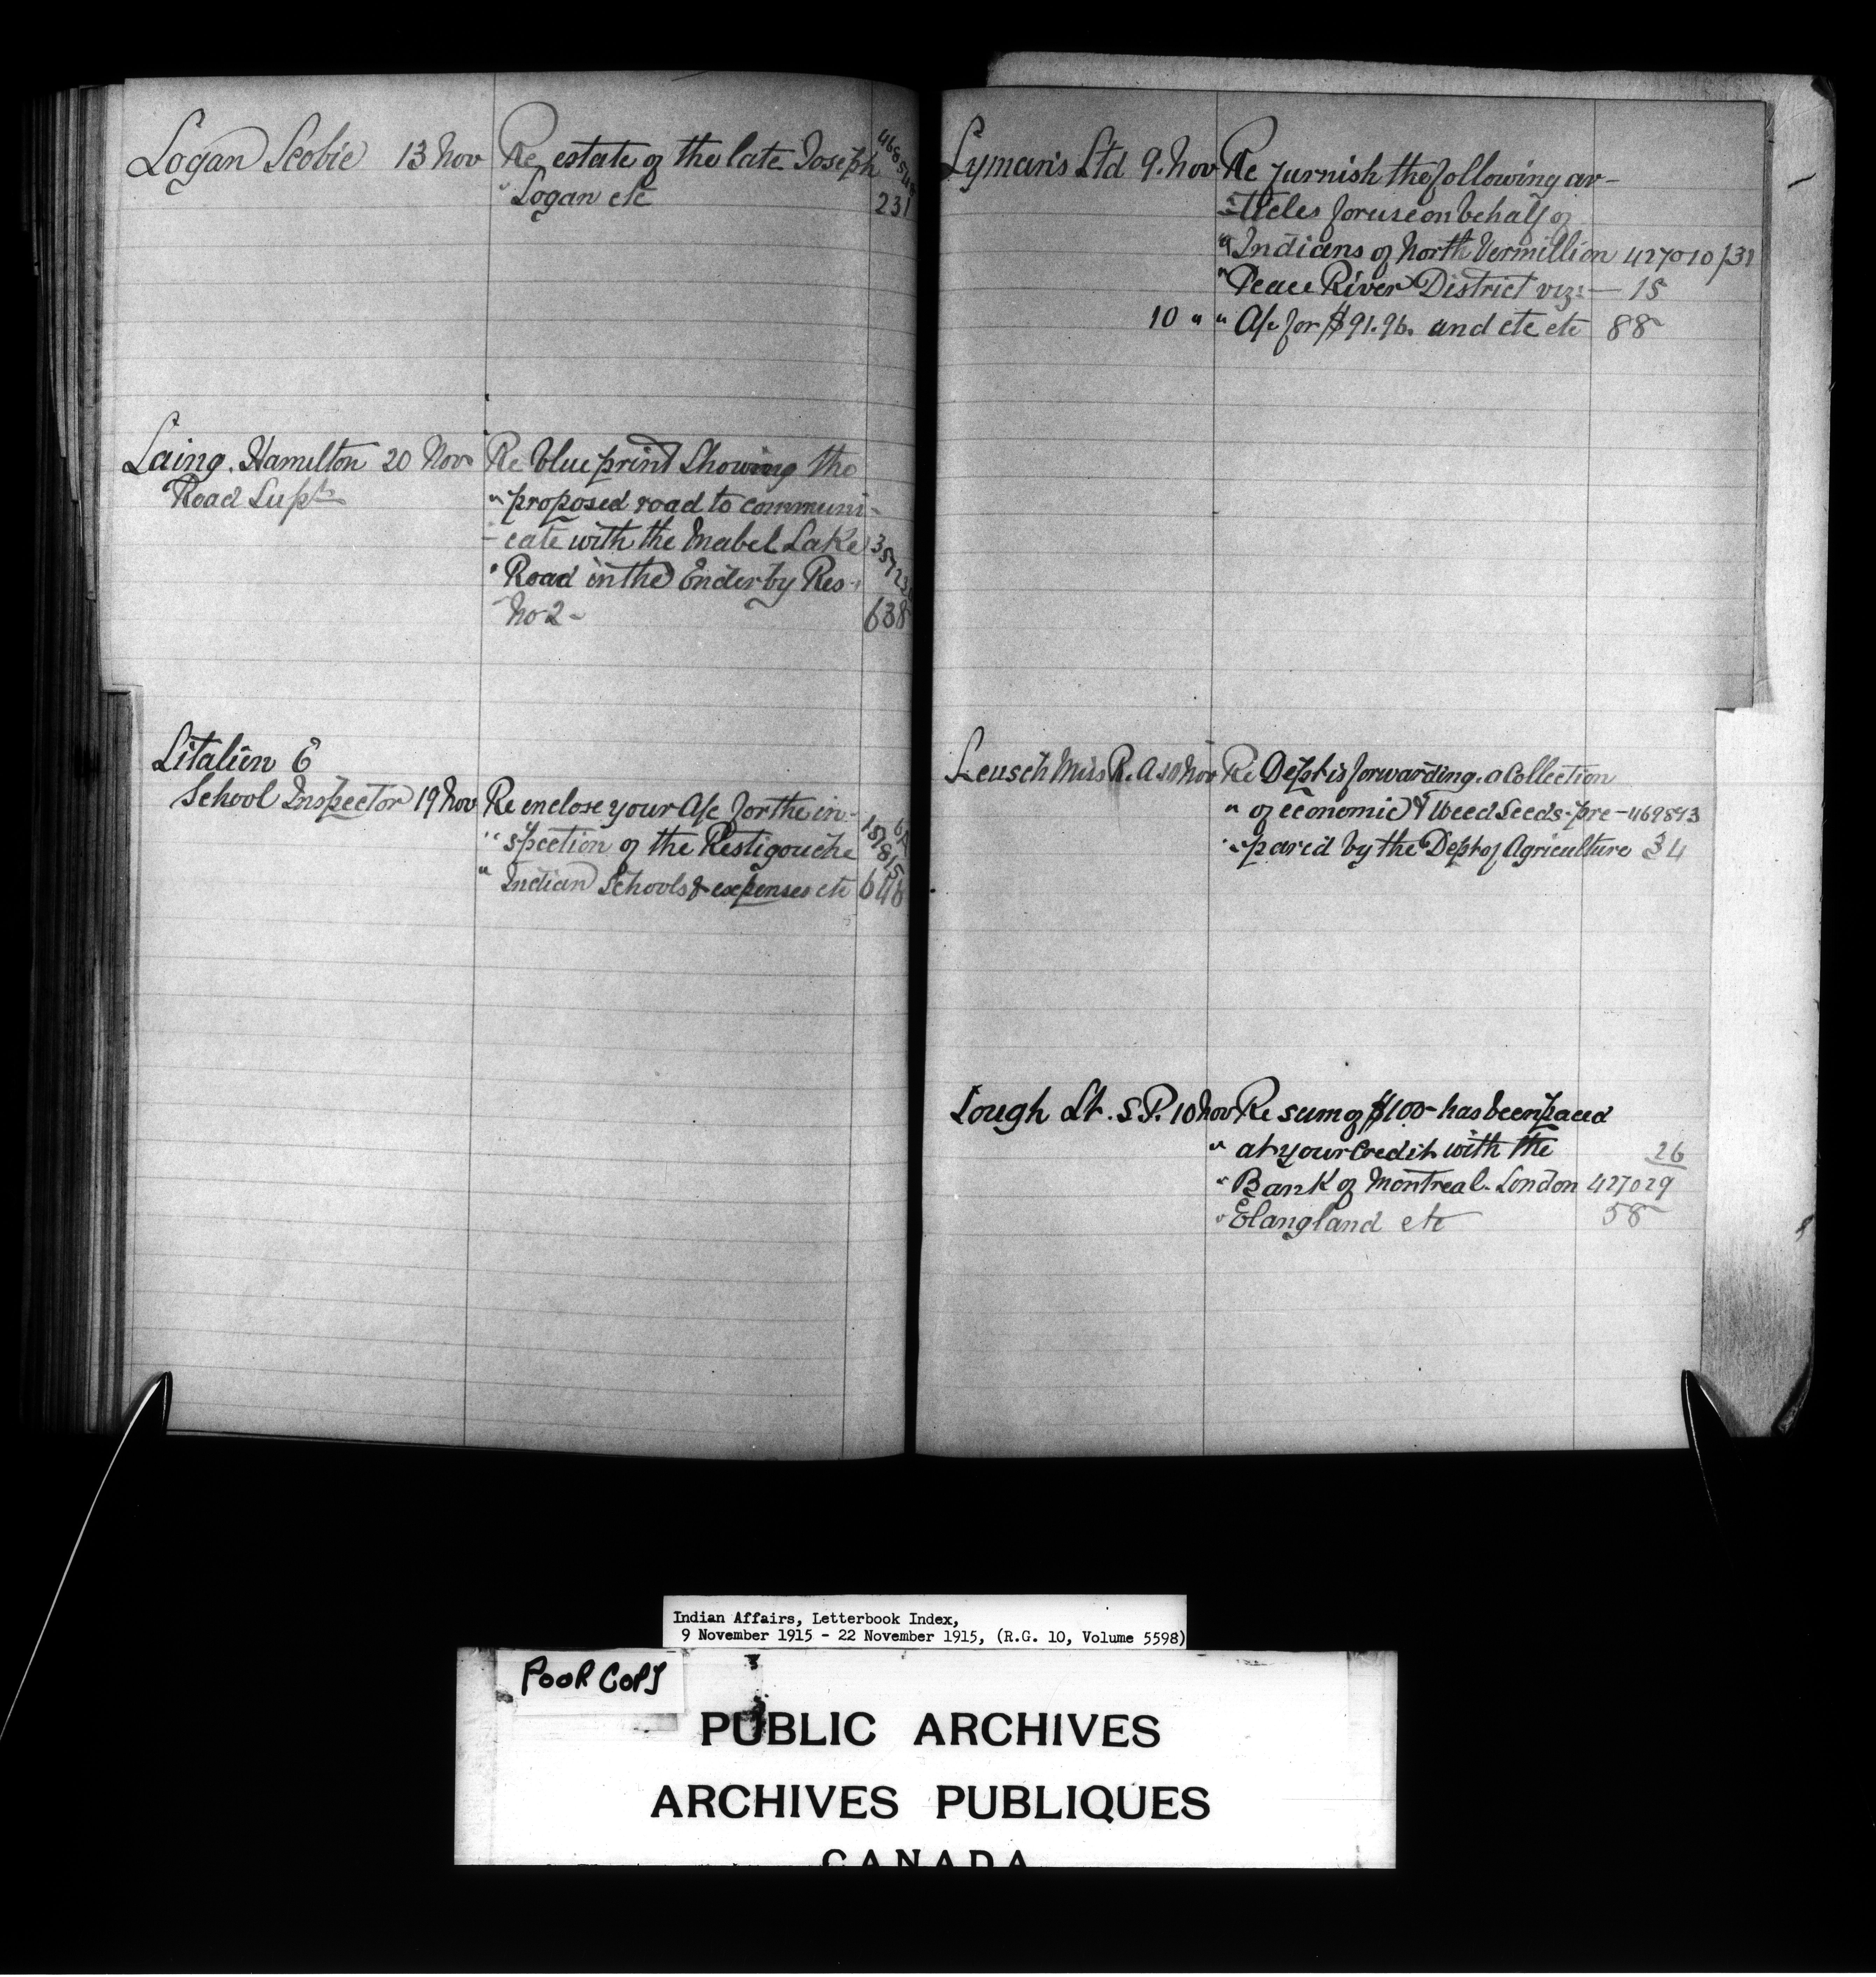 Logan Scobie 13 Nov Re estate of the late Joseph
" Logan etc 231
Laing. Hamilton 20 Nov Re blue print Showing the
Road Supt " proposed road to communi-
- cate with the Mabel Lake
" Road in the Enderby Res-
No 2- 638
Litalien E
School Inspector 19 Nov Re enclose your A/c for the in-
" spection of the Restigouche
" Indian Schools & expenses etc 646
Lyman's Ltd 9. Nov Re furnish the following ar-
-ticles for use on behalf of
" Indians of North Vermillion 427010/31
" Peace River District viz:- 15
10 " " A/c for $91.96. and etc etc 88
Leusch Miss R. A. 10 Nov Re Dept is forwarding. a Collection
" of economic & Weed Seeds-pre- 469893
" -pared by the Dept of Agriculture 34
Lough Lt. S.P. 10 Nov Re sum of $100- has been paced
" at your Credit with the 26
" Bank of Montreal. London 427029
" Elangland etc 58
Indian Affairs, Letterbook Index,
9 November 1915 - 22 November 1915, (R.G. 10, Volume 5598)
POOR COPY
PUBLIC ARCHIVES
ARCHIVES PUBLIQUES
CANADA